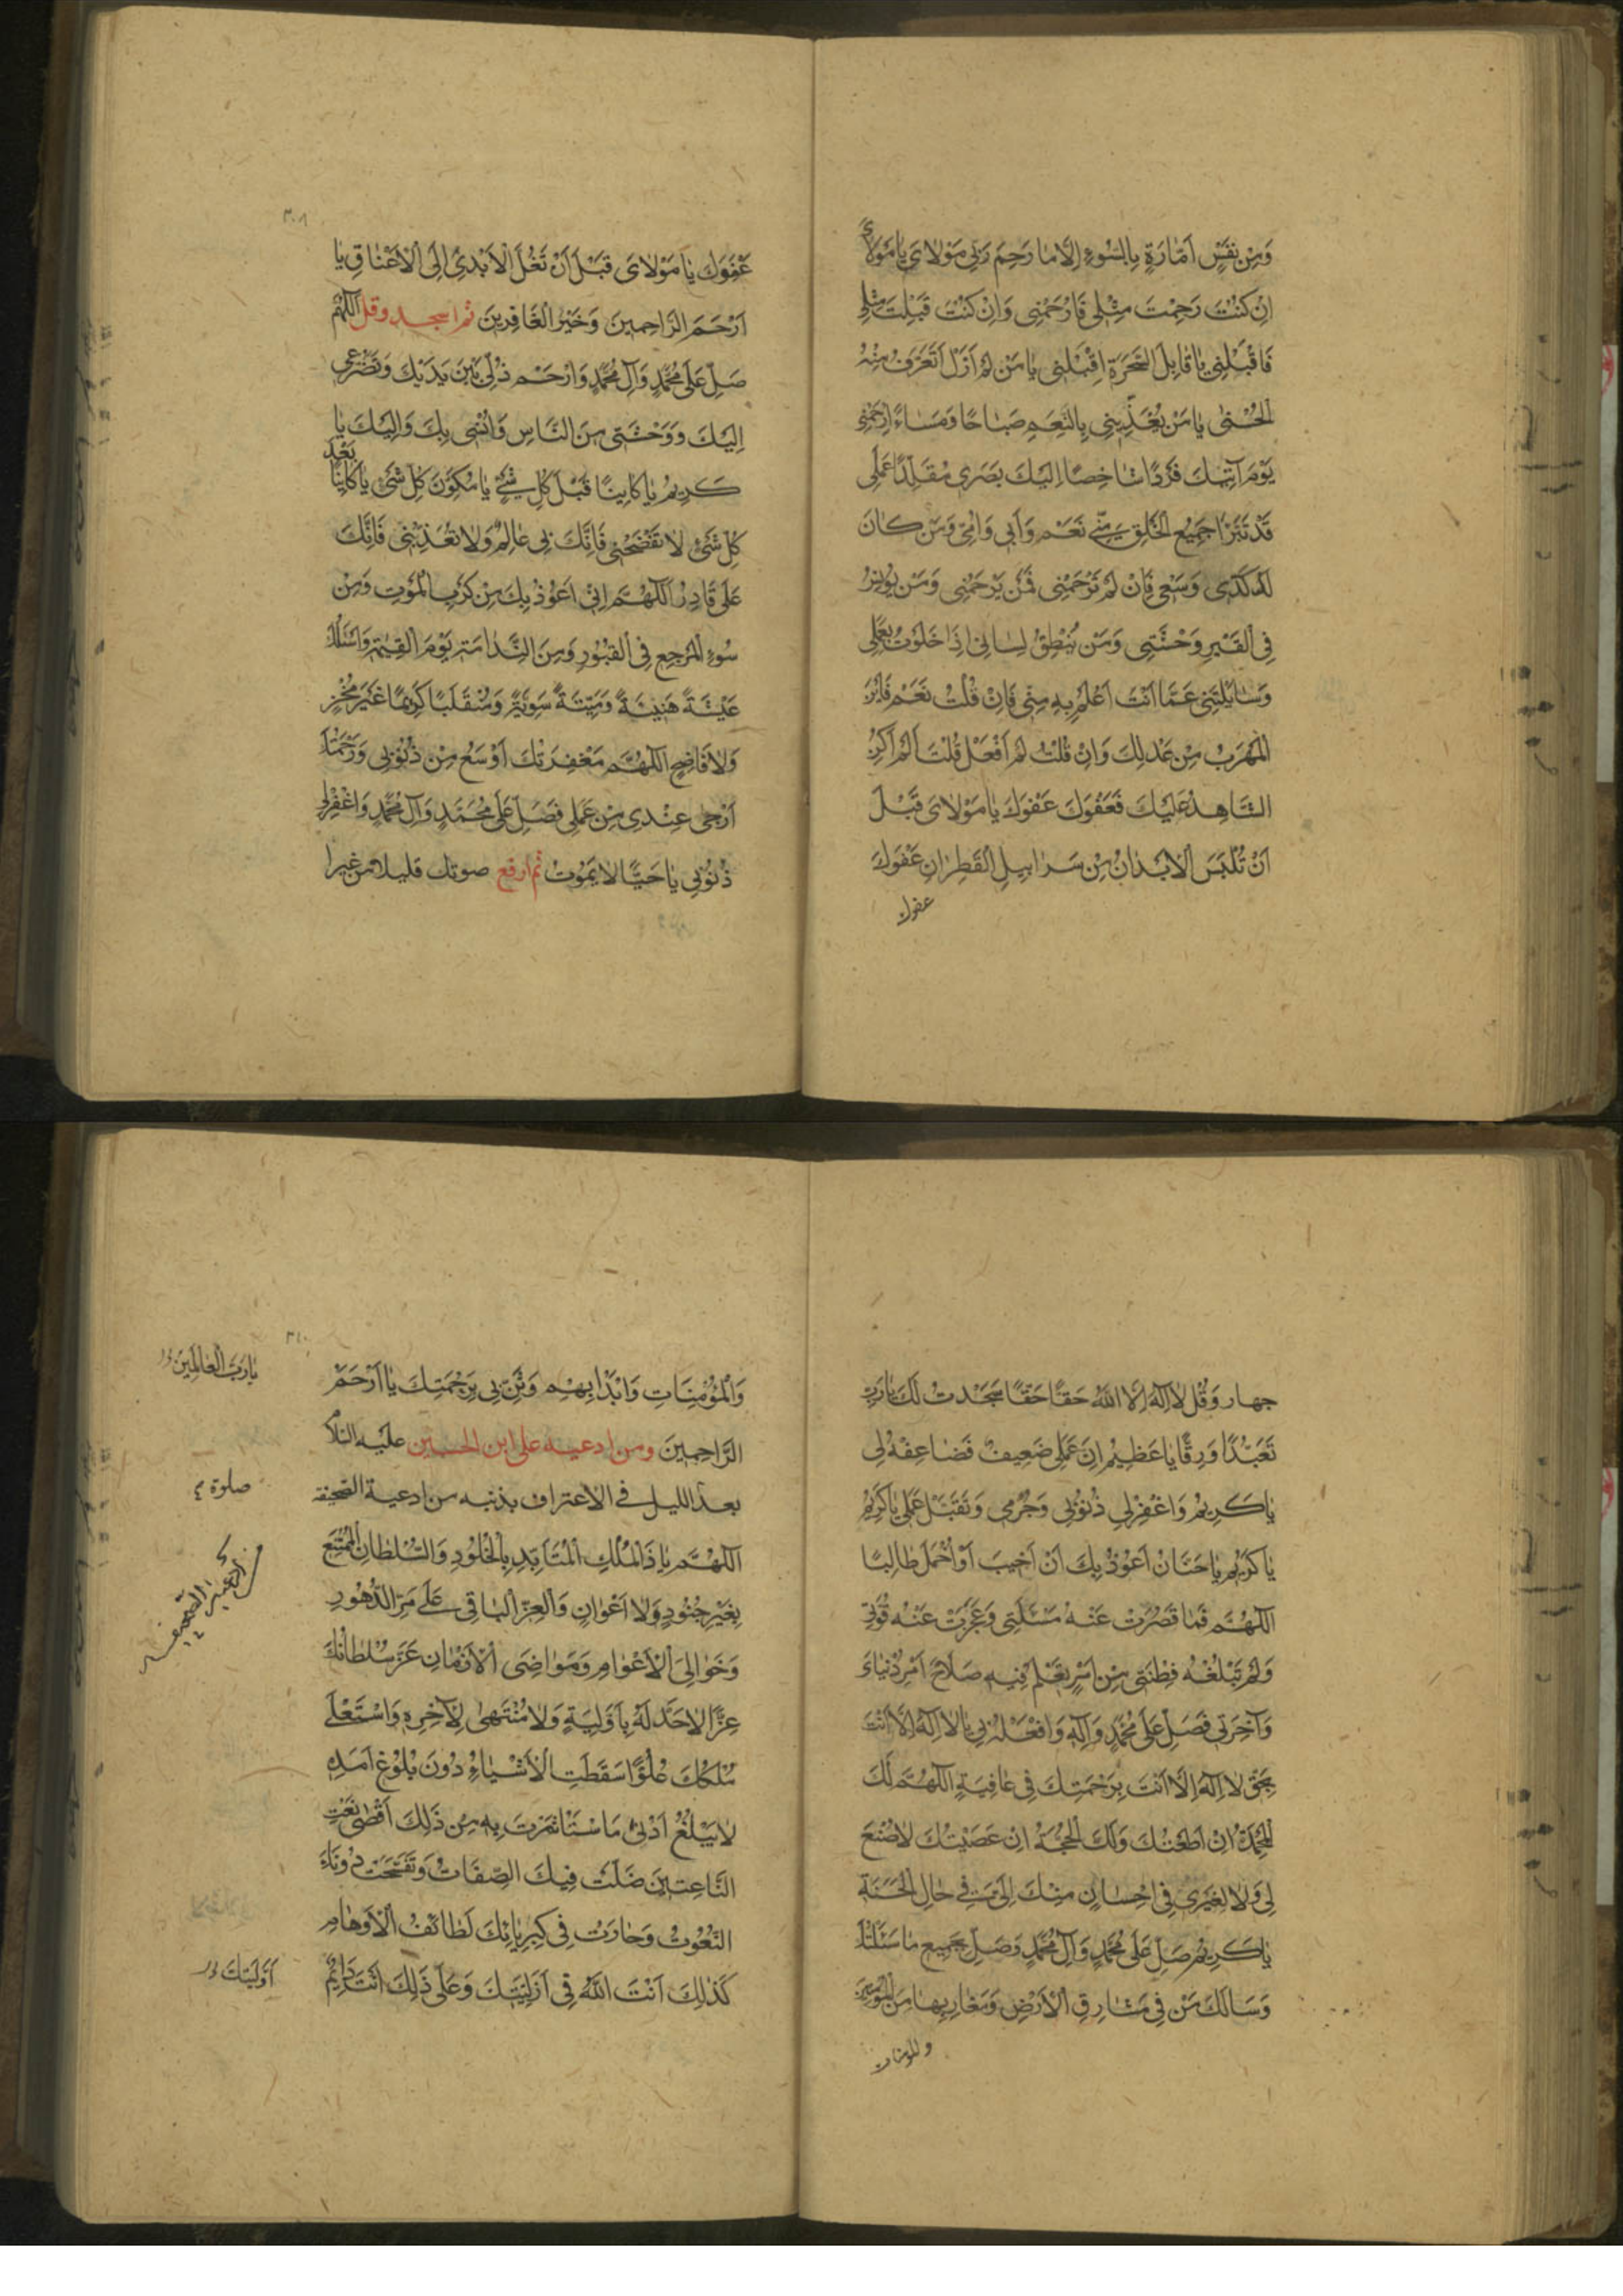 وَمِنْ نَفْسٍ اَمّٰارَةٍ بِالسُّوءِ اِلّٰا مٰا رَحِمَ رَبّى مَوْلٰاىَ يٰا مَوْلاىَ
اِنْ كُنْتَ رَحِمْتَ مِثْلى فَارْحَمْنى وَاِنْ كُنْتَ قَبِلْتَ مِثْلى
فَاقْبَلْنى يٰا قٰابِلَ السَّحَرَةِ اِقْبَلْنى يٰا مَنْ لَمْ اَزَلْ اَتَعَرَّفُ مِنْهُ
الْحُسْنىٰ يٰا مَنْ يُغَذّينى بِالنِّعَمِ صَبٰاحًا وَمَسٰاءً اِرْحَمْنى
يَوْمَ آتيكَ فَرْدًا شٰاخِصًا اِلَيْكَ بَصَرى مُقَلَّدًا عَمَلى
قَدْ تَبَرَّاَ جَميعُ الْخَلْقِ مِنّى نَعَمْ وَاَبى وَاُمّى وَمَنْ كٰانَ
لَهُ كَدّى وَسَعْيى فَاِنْ لَمْ تَرْحَمْنى فَمَنْ يَرْحَمُنى وَمَنْ يُونِسُ
فِى الْقَبْرِ وَحْشَتى وَمَنْ يُنْطِقُ لِسٰانى اِذٰا خَلَوْتُ بِعَمَلى
وَسٰائَلْتَنى عَمّٰا اَنْتَ اَعْلَمُ بِهِ مِنّى فَاِنْ قُلْتُ نَعَمْ فَاَيْنَ
الْمَهْرَبُ مِنْ عَدْلِكَ وَاِنْ قُلْتُ لَمْ اَفْعَلْ قُلْتَ اَلَمْ اَكُنِ
الشّٰاهِدَ عَلَيْكَ فَعَفْوَكَ عَفْوَكَ يٰا مَوْلٰاىَ قَبْلَ
اَنْ تُلْبَسَ الْاَبْدٰانُ مِنْ سَرٰابيلِ الْقَطِرٰانِ عَفْوَكَ
عفوك
٣٠٨
عَفْوَكَ يٰا مَوْلٰاىَ قَبْلَ اَنْ تُغَلَّ الْاَيْدى اِلَى الْاَعْنٰاقِ يٰا
اَرْحَمَ الرّٰاحِمينَ وَخَيْرَ الْغٰافِرينَ ثم اسجد وقل اَللّهُمَّ
صَلِّ عَلىٰ مُحَمَّدٍ وَآلِ مُحَمَّدٍ وَارْحَمْ ذُلّى بَيْنَ يَدَيْكَ وَتَضَرُّعى
اِلَيْكَ وَوَحْشَتى مِنَ النّٰاسِ وَاُنْسى بِكَ وَاِلَيْكَ يٰا
كَريمُ يٰا كٰائِنًا قَبْلَ كُلِّ شَىْءٍ يٰا مُكَوِّنَ كُلِّ شَىْءٍ يٰا كٰائِنًا بَعْدَ
كُلِّ شَىْءٍ لٰا تَفْضَحْنى فَاِنَّكَ بى عٰالِمٌ وَلٰا تُعَذِّبْنى فَاِنَّكَ
عَلَىَّ قٰادِرٌ اَللّٰهُمَّ اِنّى اَعُوذُ بِكَ مِنْ كَرْبِ الْمَوْتِ وَمِنْ
سُوءِ الْمَرْجِعِ فِى الْقُبُورِ وَمِنَ النَّدٰامَةِ يَوْمَ الْقِيٰمَةِ وَاَسْئَلُكَ
عيشَةً هَنيئَةً وَميتَةً سَوِيَّةً وَمُنْقَلَبًا كَريمًا غَيْرَ مُخْزٍ
وَلٰا فٰاضِحٍ اَللّٰهُمَّ مَغْفِرَتُكَ اَوْسَعُ مِنْ ذُنُوبى وَرَحْمَتُكَ
اَرْجىٰ عِنْدى مِنْ عَمَلى فَصَلِّ عَلىٰ مُحَمَّدٍ وَآلِ مُحَمَّدٍ وَاغْفِرْ لى
ذُنُوبى يٰا حَيًّا لٰا يَمُوتُ ثم ارفع صوتك قليلا من غيرا
جهار وَقُلْ لٰا اِلٰهَ اِلَّا اللّٰهُ حَقًّا حَقًّا سَجَدْتُ لَكَ يٰا رَبِّ
تَعَبُّدًا وَرِقًّا يٰا عَظيمُ اِنَّ عَمَلى ضَعيفٌ فَضٰاعِفْهُ لى
يٰا كَريمُ وَاغْفِرْ لى ذُنُوبى وَجُرْمى وَتَقَبَّلْ عَمَلى يٰا كَريمُ
يٰا كَريمُ يٰا حَنّٰانُ اَعُوذُ بِكَ اَنْ اَخيبَ اَوْ اَحْمِلَ ظُلْمًا
اَللّٰهُمَّ فَمٰا قَصُرَتْ عَنْهُ مَسْئَلَتى وَعَجَزَتْ عَنْهُ قُوَّتى
وَلَمْ تَبْلُغْهُ فِطْنَتى مِنْ اَمْرٍ تَعْلَمُ فيهِ صَلٰاحَ اَمْرِ دُنْيٰاىَ
وَآخِرَتى فَصَلِّ عَلىٰ مُحَمَّدٍ وَآلِهِ وَافْعَلْهُ بى يٰا لٰا اِلٰهَ اِلّٰا اَنْتَ
بِحَقِّ لٰا اِلٰهَ اِلّٰا اَنْتَ بِرَحْمَتِكَ فى عٰافِيَةٍ اَللّٰهُمَّ لَكَ
الْمَحْمَدَةُ اِنْ اَطَعْتُكَ وَلَكَ الْحُجَّةُ اِنْ عَصَيْتُكَ لٰا صُنْعَ
لى وَلٰا لِغَيْرى فى اِحْسٰانٍ مِنْكَ اِلَىَّ فى حٰالِ الْحَسَنَةِ
يٰا كَريمُ صَلِّ عَلىٰ مُحَمَّدٍ وَآلِ مُحَمَّدٍ وَصِلْ بِجَميعِ مٰا سَئَلْتُكَ
وَسَاَلَكَ مَنْ فى مَشٰارِقِ الْاَرْضِ وَمَغٰارِبِهٰا مِنَ الْمُؤْمِنينَ
والمومنات
٣١٠
وَالْمُؤْمِنٰاتِ وَابْدَاْ بِهِمْ وَثَنِّ بى بِرَحْمَتِكَ يٰا اَرْحَمَ
الرّٰاحِمينَ ومن ادعيه على ابن الحسين عليه السلام
بعد الليل فى الاعتراف بذنبه من ادعية الصحيفة
اَللّٰهُمَّ يٰا ذَا الْمُلْكِ الْمُتَاَبِّدِ بِالْخُلُودِ وَالسُّلْطٰانِ الْمُمْتَنِعِ
بِغَيْرِ جُنُودٍ وَلٰا اَعْوٰانٍ وَالْعِزِّ الْبٰاقى عَلىٰ مَرِّ الدُّهُورِ
وَخَوٰالِى الْاَعْوٰامِ وَمَوٰاضِى الْاَزْمٰانِ عَزَّ سُلْطٰانُكَ
عِزًّا لٰا حَدَّ لَهُ بِاَوَّلِيَّةٍ وَلٰا مُنْتَهىٰ لَهُ بِآخِرِيَّةٍ وَاسْتَعْلىٰ
مُلْكُكَ عُلُوًّا سَقَطَتِ الْاَشْيٰاءُ دُونَ بُلُوغِ اَمَدِهِ
لٰا يَبْلُغُ اَدْنىٰ مَا اسْتَاْثَرْتَ بِهِ مِنْ ذٰلِكَ اَقْصىٰ نَعْتِ
النّٰاعِتينَ ضَلَّتْ فيكَ الصِّفٰاتُ وَتَفَسَّخَتْ دُونَكَ
النُّعُوتُ وَحٰارَتْ فى كِبْرِيٰائِكَ لَطٰائِفُ الْاَوْهٰامِ
كَذٰلِكَ اَنْتَ اللّٰهُ فى اَزَلِيَّتِكَ وَعَلىٰ ذٰلِكَ اَنْتَ دٰائِمٌ
يٰا رَبَّ الْعٰالَمينَ
صلوة
اَوَّلِيَّتِكَ